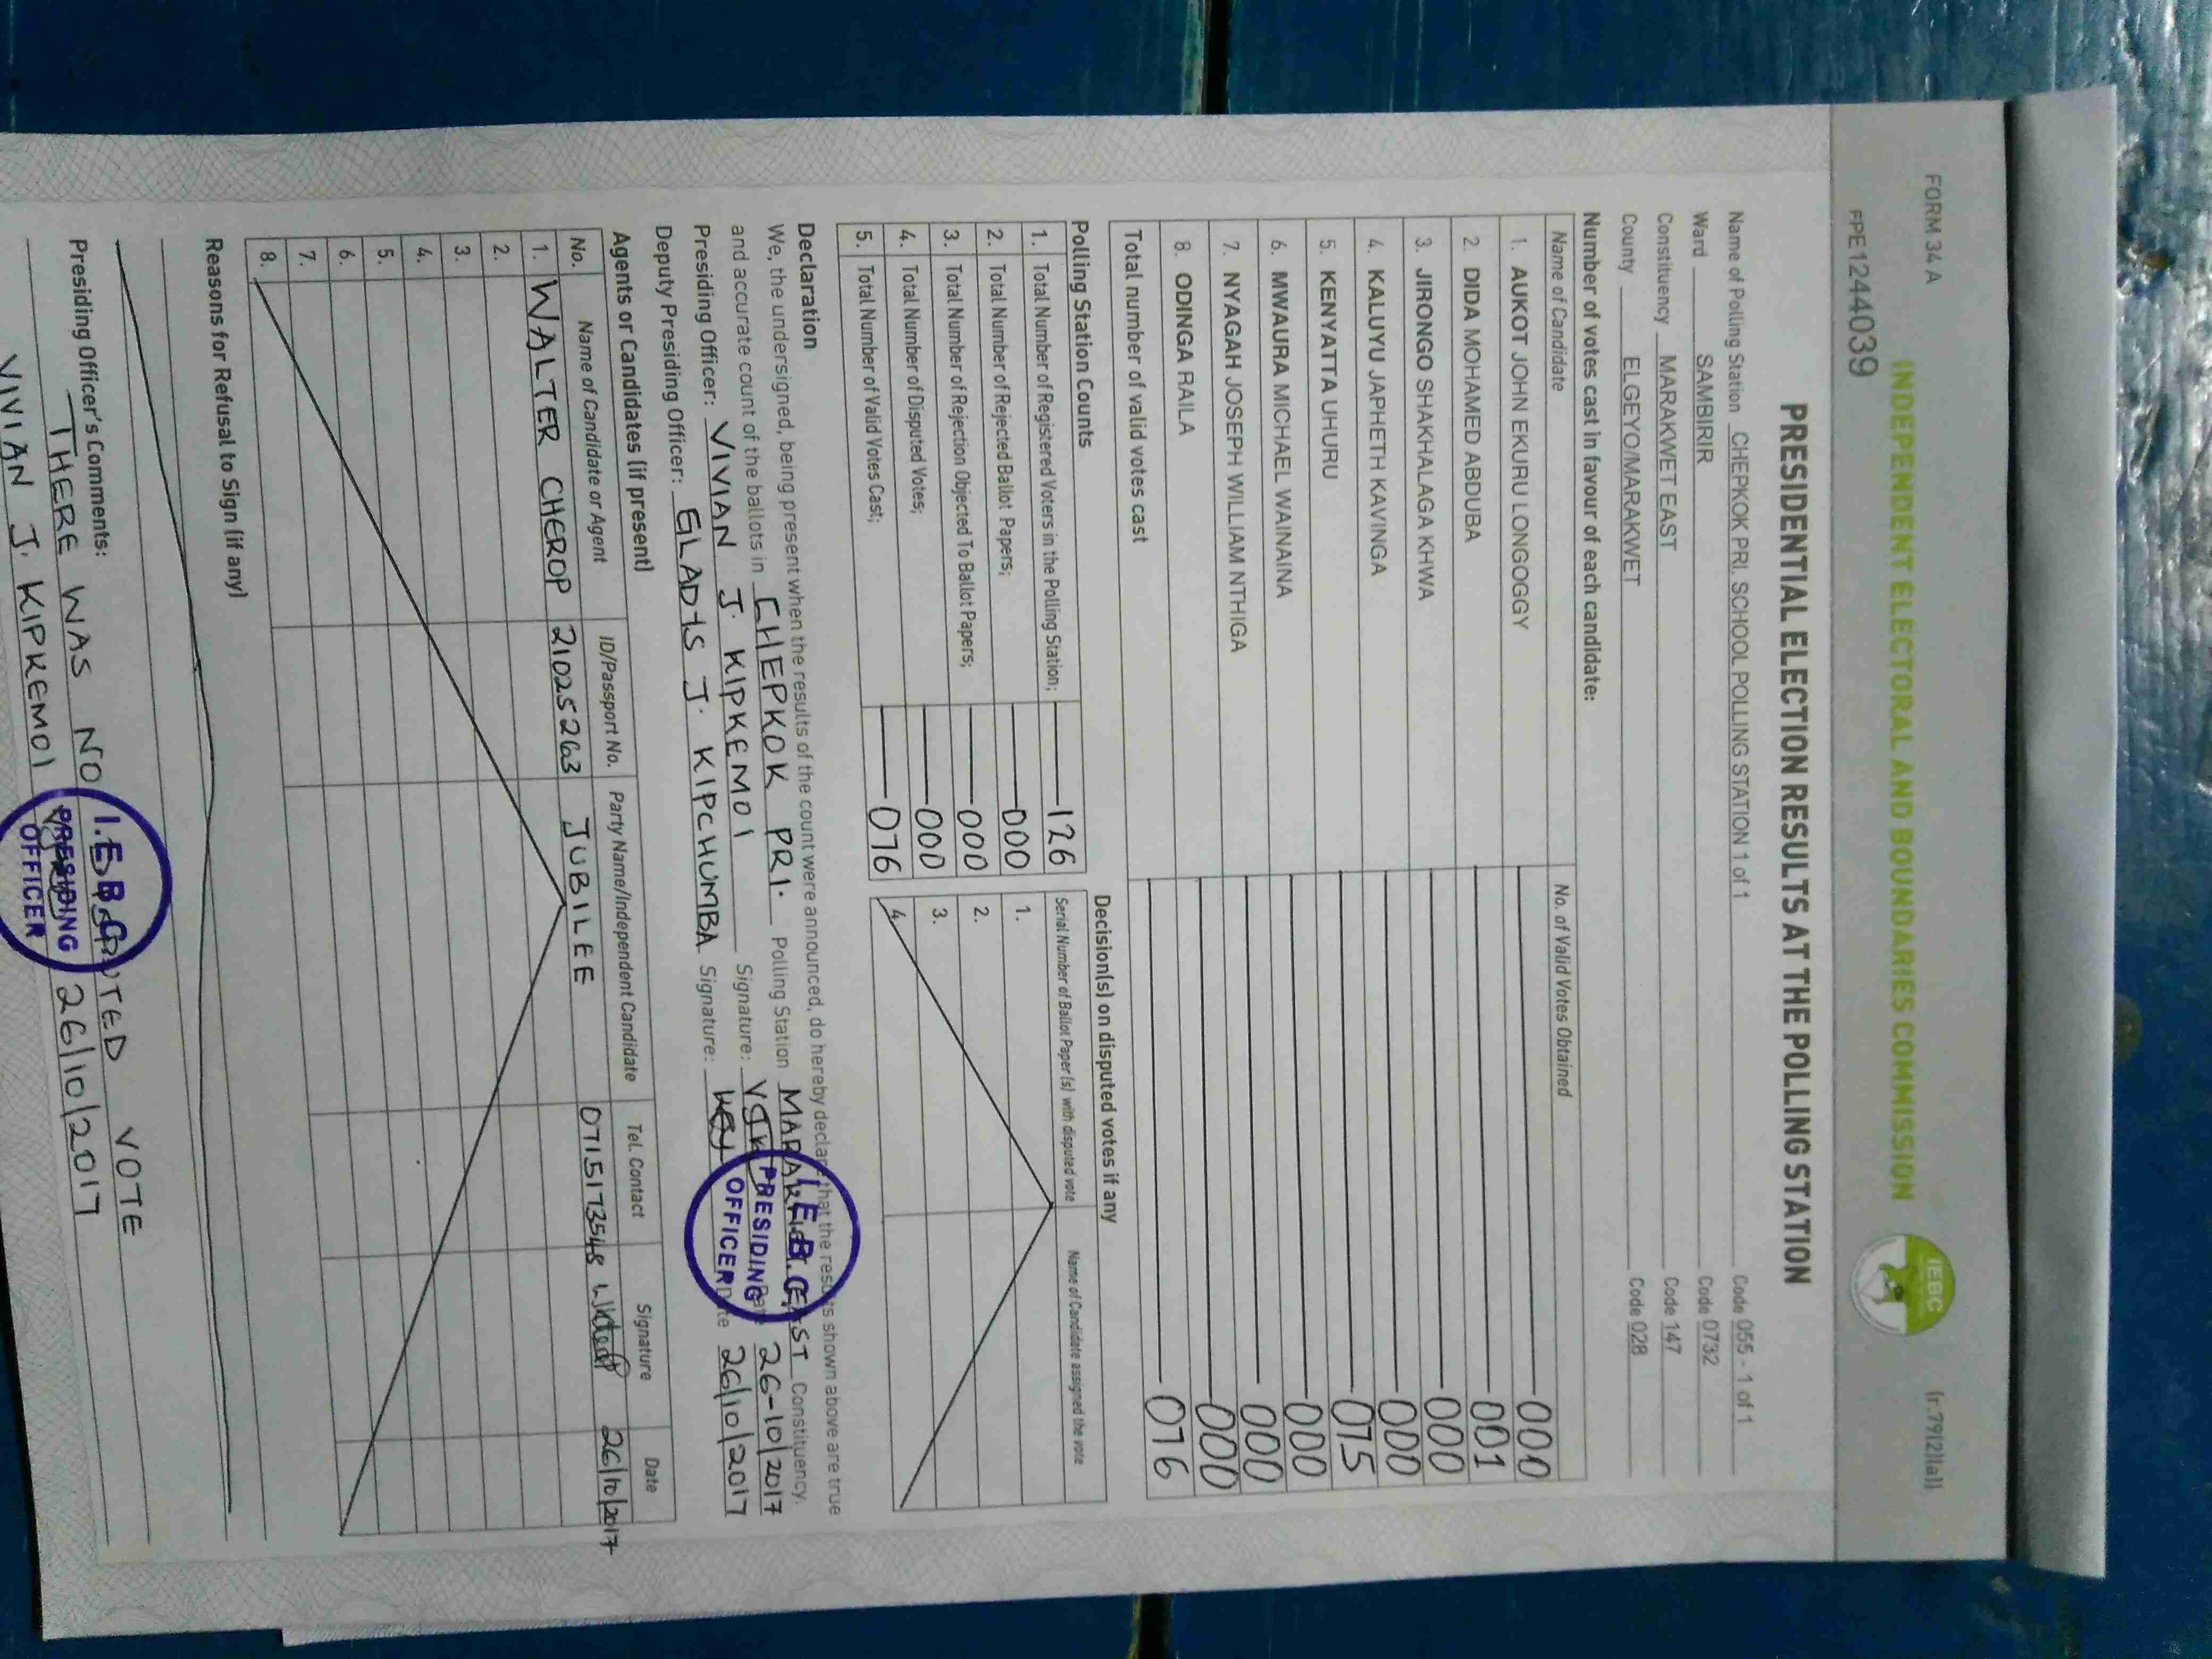 FORM 34 A
(r.79(2)(a))
INDEPENDENT ELECTORAL AND BOUNDARIES COMMISSION
IEBC
FPE1244039
PRESIDENTIAL ELECTION RESULTS AT THE POLLING STATION
Name of Polling Station CHEPKOK PRI. SCHOOL POLLING STATION 1 of 1 Code 055 - 1 of 1
Ward SAMBIRIR Code 0732
Constituency MARAKWET EAST Code 147
County ELGEYO/MARAKWET Code 028
Number of votes cast in favour of each candidate:
Name of Candidate No. of Valid Votes Obtained
1. AUKOT JOHN EKURU LONGOGGY 000
2. DIDA MOHAMED ABDUBA 001
3. JIRONGO SHAKHALAGA KHWA 000
4. KALUYU JAPHETH KAVINGA 000
5. KENYATTA UHURU 075
6. MWAURA MICHAEL WAINAINA 000
7. NYAGAH JOSEPH WILLIAM NTHIGA 000
8. ODINGA RAILA 000
Total number of valid votes cast 076
Polling Station Counts
1. Total Number of Registered Voters in the Polling Station; 126
2. Total Number of Rejected Ballot Papers; 000
3. Total Number of Rejection Objected To Ballot Papers; 000
4. Total Number of Disputed Votes; 000
5. Total Number of Valid Votes Cast; 076
Decision(s) on disputed votes if any
Serial Number of Ballot Paper(s) with disputed vote Name of Candidate assigned the vote
1.
2.
3.
4.
Declaration
We, the undersigned, being present when the results of the count were announced, do hereby declare that the results shown above are true
and accurate count of the ballots in CHEPKOK PRI. Polling Station MARAKWET EAST Constituency.
Presiding Officer: VIVIAN J. KIPKEMOI Signature: Date 26-10/2017
Deputy Presiding Officer: GLADYS J. KIPCHUMBA Signature: Date 26/10/2017
I.E.B.C.
PRESIDING
OFFICER
Agents or Candidates (if present)
No. Name of Candidate or Agent ID/Passport No. Party Name/Independent Candidate Tel. Contact Signature Date
1. WALTER CHEROP 21025263 JUBILEE 0715173548 26/10/2017
2.
3.
4.
5.
6.
7.
8.
Reasons for Refusal to Sign (if any)
Presiding Officer's Comments:
THERE WAS NO DISPUTED VOTE
VIVIAN J. KIPKEMOI 26/10/2017
I.E.B.C.
PRESIDING
OFFICER